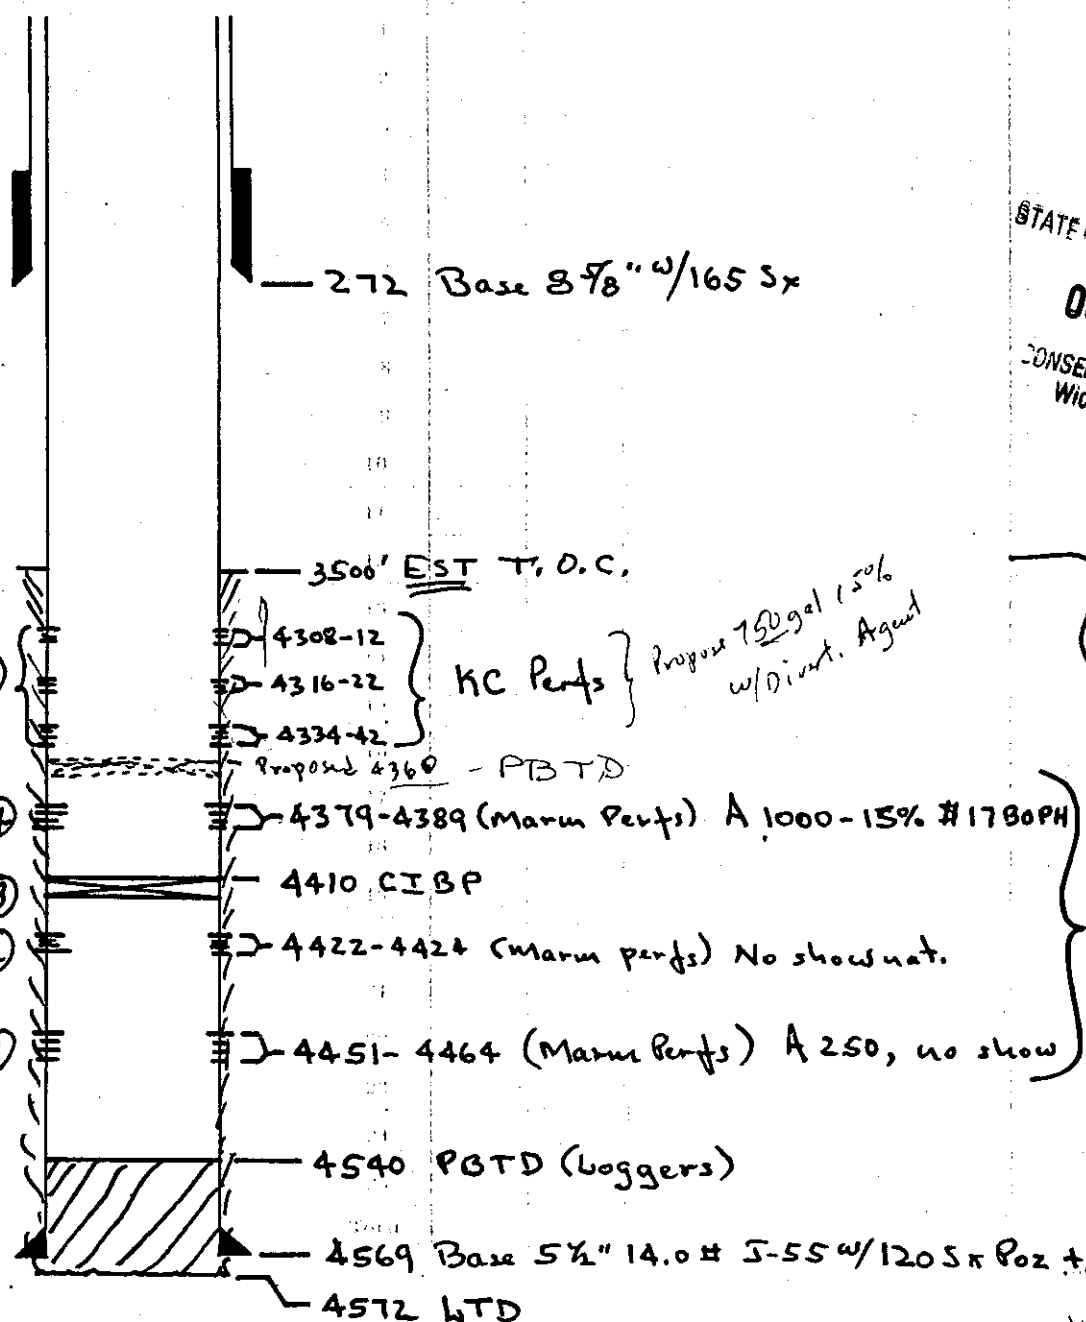 STATE
272 Base 8 5/8" w/165 Sx
CONSE
10
3500' EST T.O.C.
4308-12
4316-22
4334-42
KC Perfs
Propose 750 gal 15%
w/Divert. Agent
Proposed 4360 - PBTD
4379-4389 (Marm Perfs) A 1000-15% #17BOPH
4410 CIBP
4422-4424 (Marm perfs) No show nat.
4451-4464 (Marm Perfs) A 250, no show
4540 PBTD (Loggers)
4569 Base 5 1/2" 14.0# J-55 w/120 Sx Poz
4572 LTD